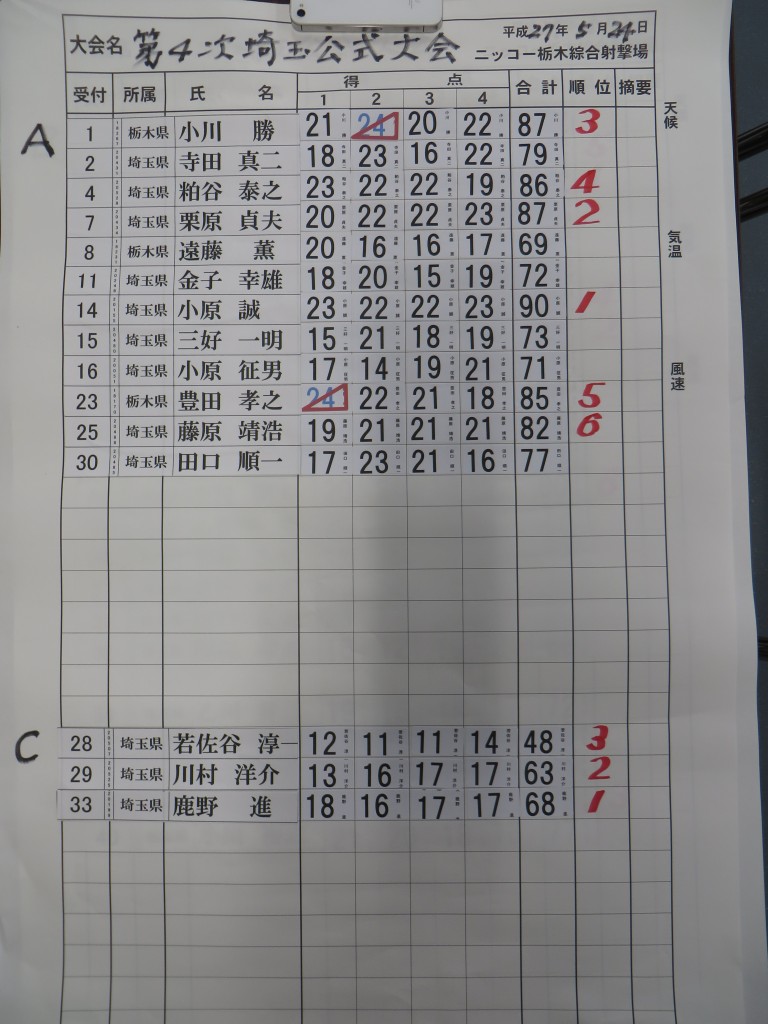 平成27年5月24日
大会名 第4次埼玉公式大会 ニッコー栃木綜合射撃場
受付 所属 氏名 得点 合計 順位 摘要
1 2 3 4
天候
気温
風速
A
1 栃木県 小川 勝 21 24 20 22 87 3
2 埼玉県 寺田 真二 18 23 16 22 79
4 埼玉県 粕谷 泰之 23 22 22 19 86 4
7 埼玉県 栗原 貞夫 20 22 22 23 87 2
8 栃木県 遠藤 薫 20 16 16 17 69
11 埼玉県 金子 幸雄 18 20 15 19 72
14 埼玉県 小原 誠 23 22 22 23 90 1
15 埼玉県 三好 一明 15 21 18 19 73
16 埼玉県 小原 征男 17 14 19 21 71
23 栃木県 豊田 孝之 24 22 21 18 85 5
25 埼玉県 藤原 靖浩 19 21 21 21 82 6
30 埼玉県 田口 順一 17 23 21 16 77
C
28 埼玉県 若佐谷 淳一 12 11 11 14 48 3
29 埼玉県 川村 洋介 13 16 17 17 63 2
33 埼玉県 鹿野 進 18 16 17 17 68 1